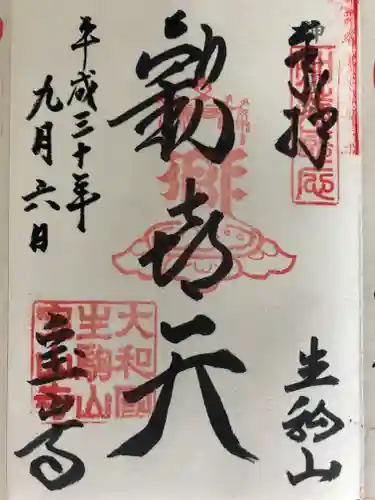 奉拝
生駒山
歓喜天
平成三十年
九月六日
宝山寺
大和國
生駒山
宝山寺